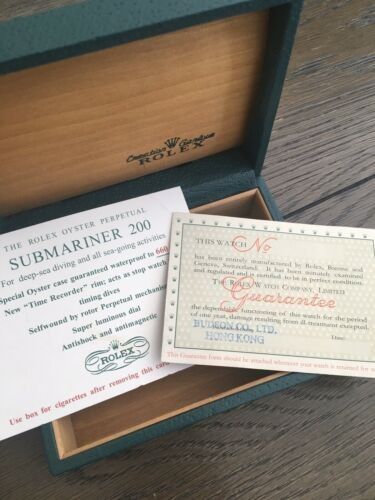 ROLEX
THE ROLEX OYSTER PERPETUAL
SUBMARINER 200
For deep-sea diving and all sea-going activities
Special Oyster case guaranteed waterproof to 660
New "Time Recorder" rim; acts as stop watch
timing dives
Selfwound by rotor Perpetual mechanism
Super luminous dial
Antishock and antimagnetic
ROLEX
Use box for cigarettes after removing this card.
THIS WATCH No
has been entirely manufactured by Rolex, Bienne and
Geneva, Switzerland. It has been minutely examined
and regulated and is certified to be in perfect condition.
THE ROLEX WATCH COMPANY, LIMITED
Guarantee
the dependable functioning of this watch for the period
of one year, damage resulting from ill-treatment excepted.
BUDSON CO., LTD.
HONG KONG
Date:
This Guarantee form should be attached whenever your watch is returned for